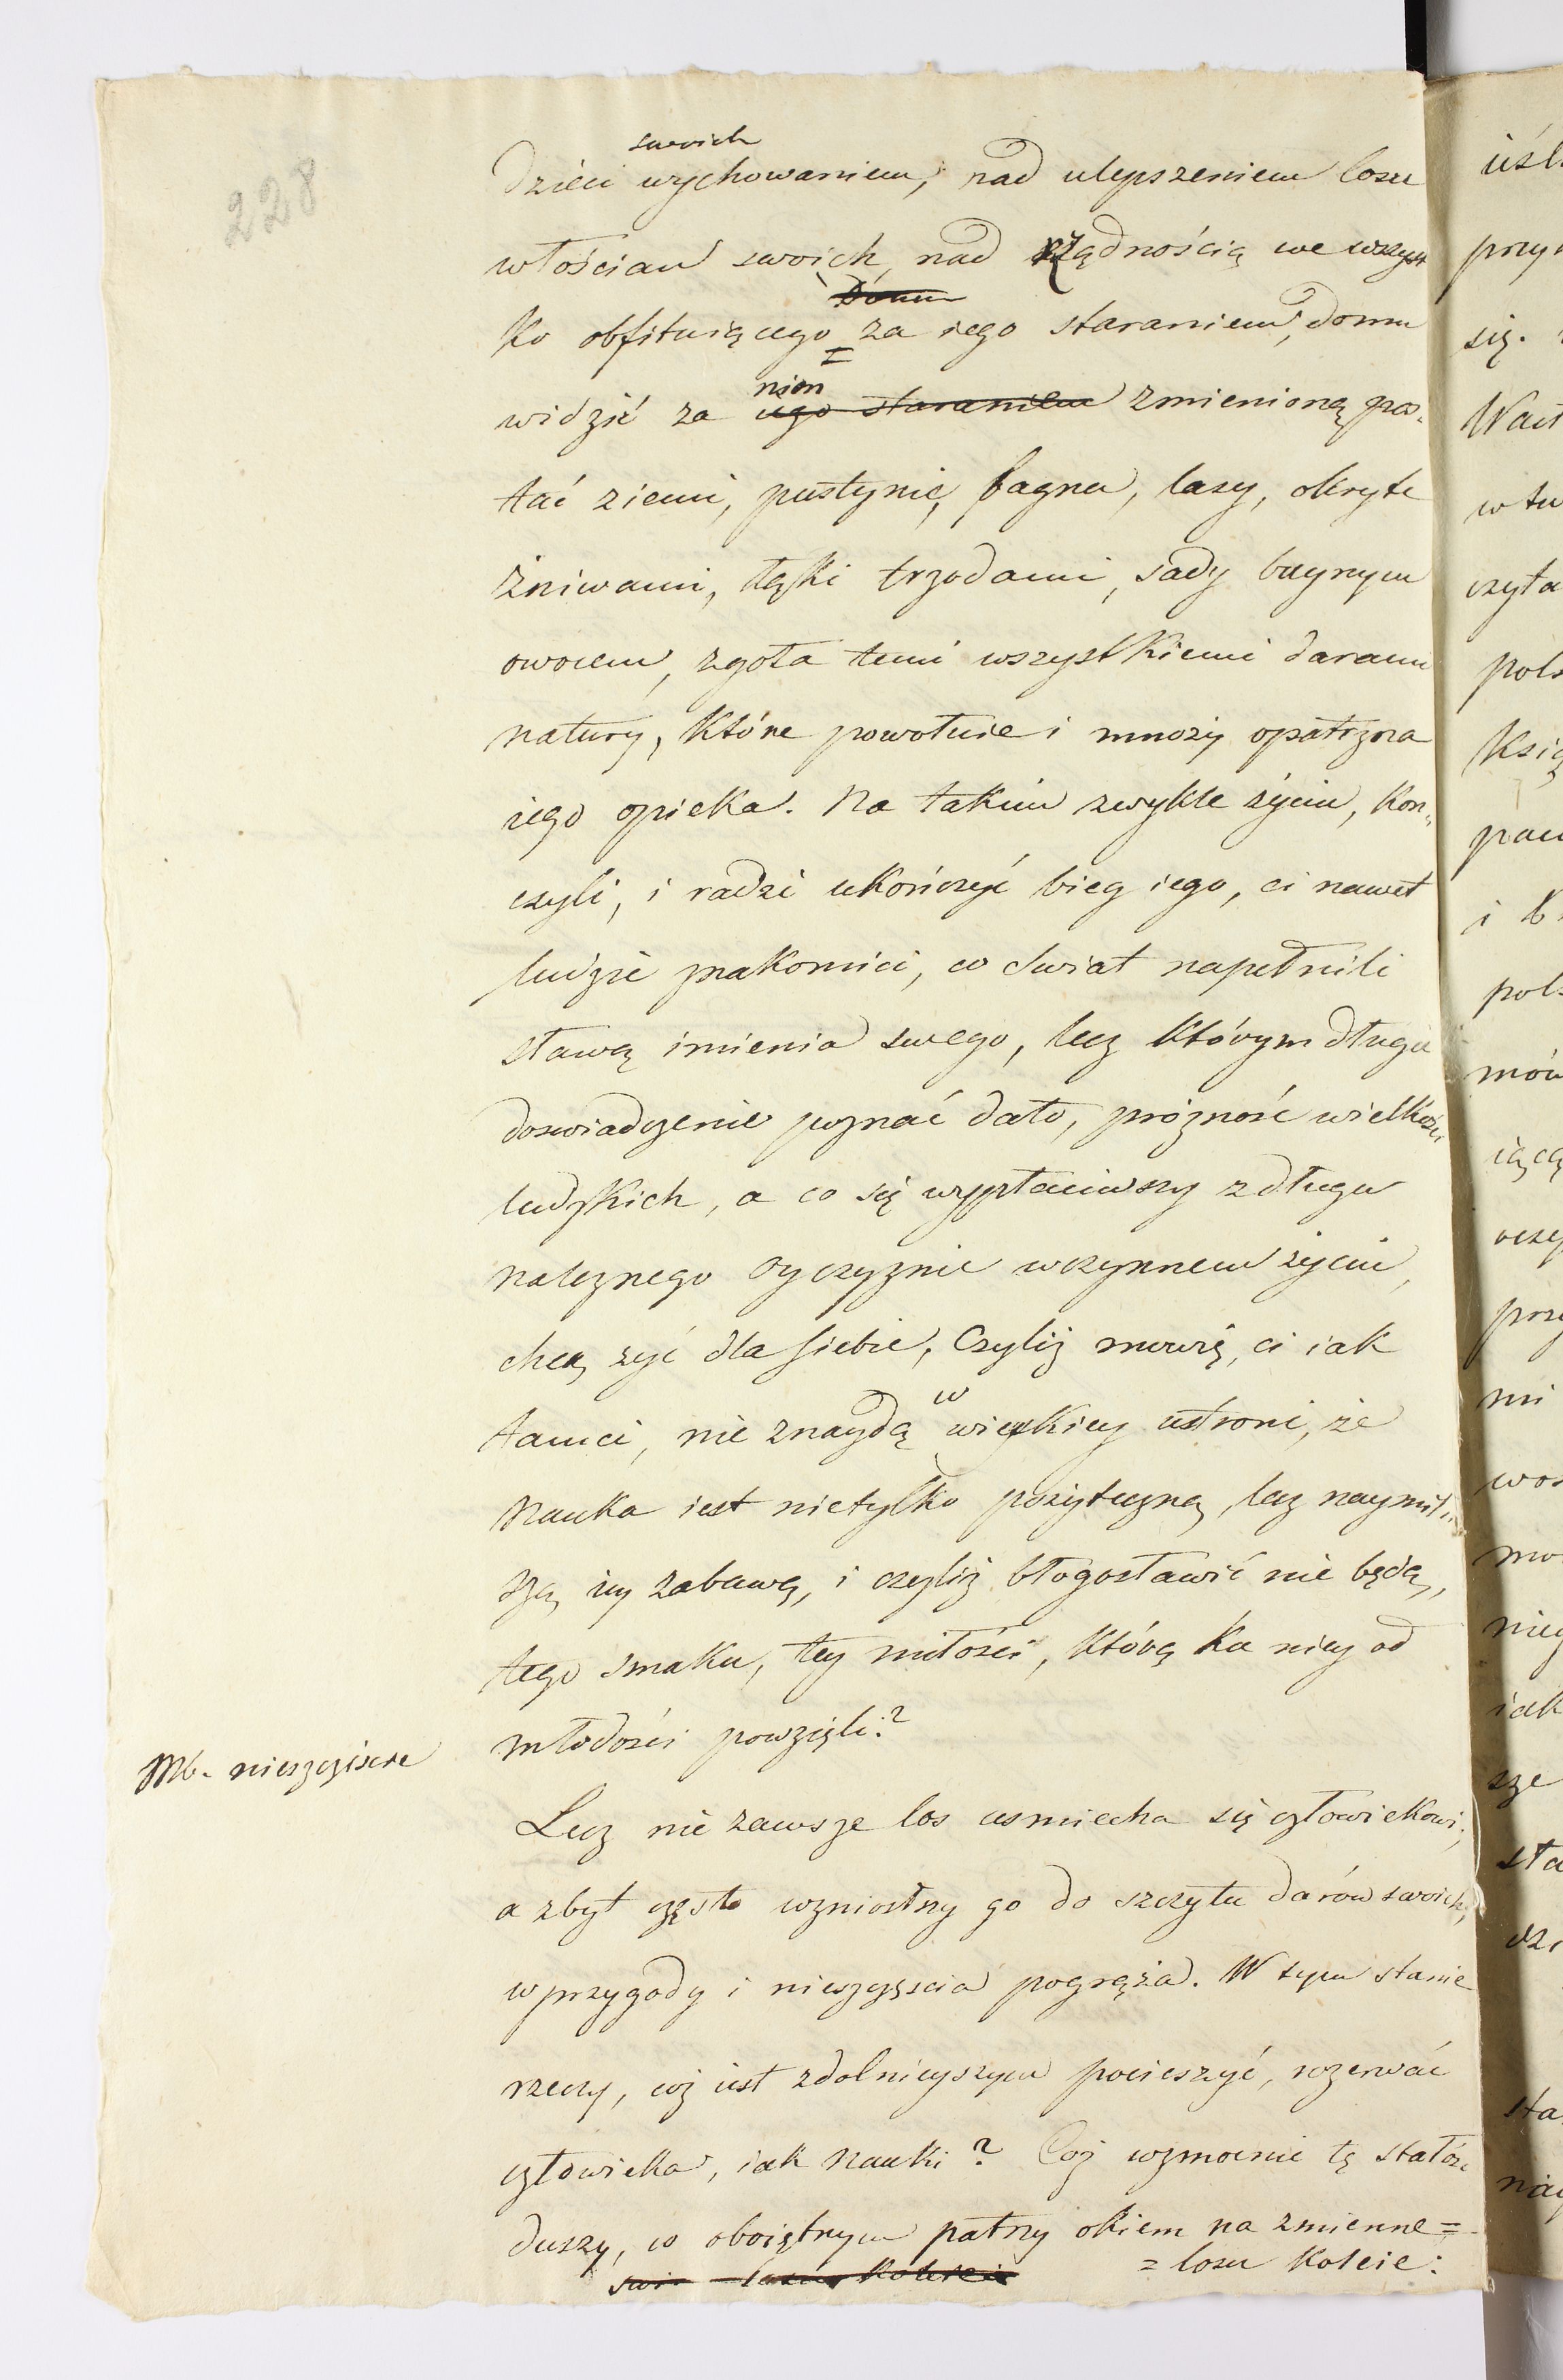 228
swoich
dzieci wychowaniem, nad ulepszeniem losu
włościan swoich, nad rządnością we wszyst
ko obfituiącego za iego staraniem, domu
nim
widzić za iego staraniem zmienioną pos„
tać ziemi, pustynie, bagna, lasy, okryte
żniwami, łąki trzodami, sady buynym
owocem, zgoła temi wszystkiemi darami
natury, które powołuie i mnoży opatrzna
iego opieka. Na takim zwykle życiu, kon„
czyli, i radzi ukończyć bieg iego, ci nawet
ludzie znakomici, co swiat napełnili
sławą imienia swego, lecz którym długie
doswiadczenie poznać dało, próżność wielkości
ludzkich, a co się wypłaciwszy z długu
należnego Oyczyznie w czynnem życiu,
chcą żyć dla siebie, Czyliż mowię, ci iak
w
tamci, nie znaydą wieyskiey ustroni, że
Nauka iest nietylko pożyteczną, lecz naymil„
szą iey zabawą, i czyliż błogosławić nie będą,
tego smaku, tey miłości, którą ku niey od
młodości powzięli?
W nieszczęściu
Lecz nie zawsze los usmiecha się człowiekowi;
a zbyt często wzniosłszy go do szczytu darów swoich,
w przygody i nieszczęscia pogrąża. W tym stanie
rzeczy, coż iest zdolnieyszym pocieszyć, rozerwać
człowieka, iak Nauki? Coż wzmocnie tę stałość
duszy, co oboiętnym patrzy okiem na zmienne=
= losu Koleie:
uśl
przy
się.
wtu
czyta
pols
Ksią
pan
i
pols
mów
iącą
oczy
przy
mi
wos
mo
nieg
iak
sze
sta
dzi
sta
nay